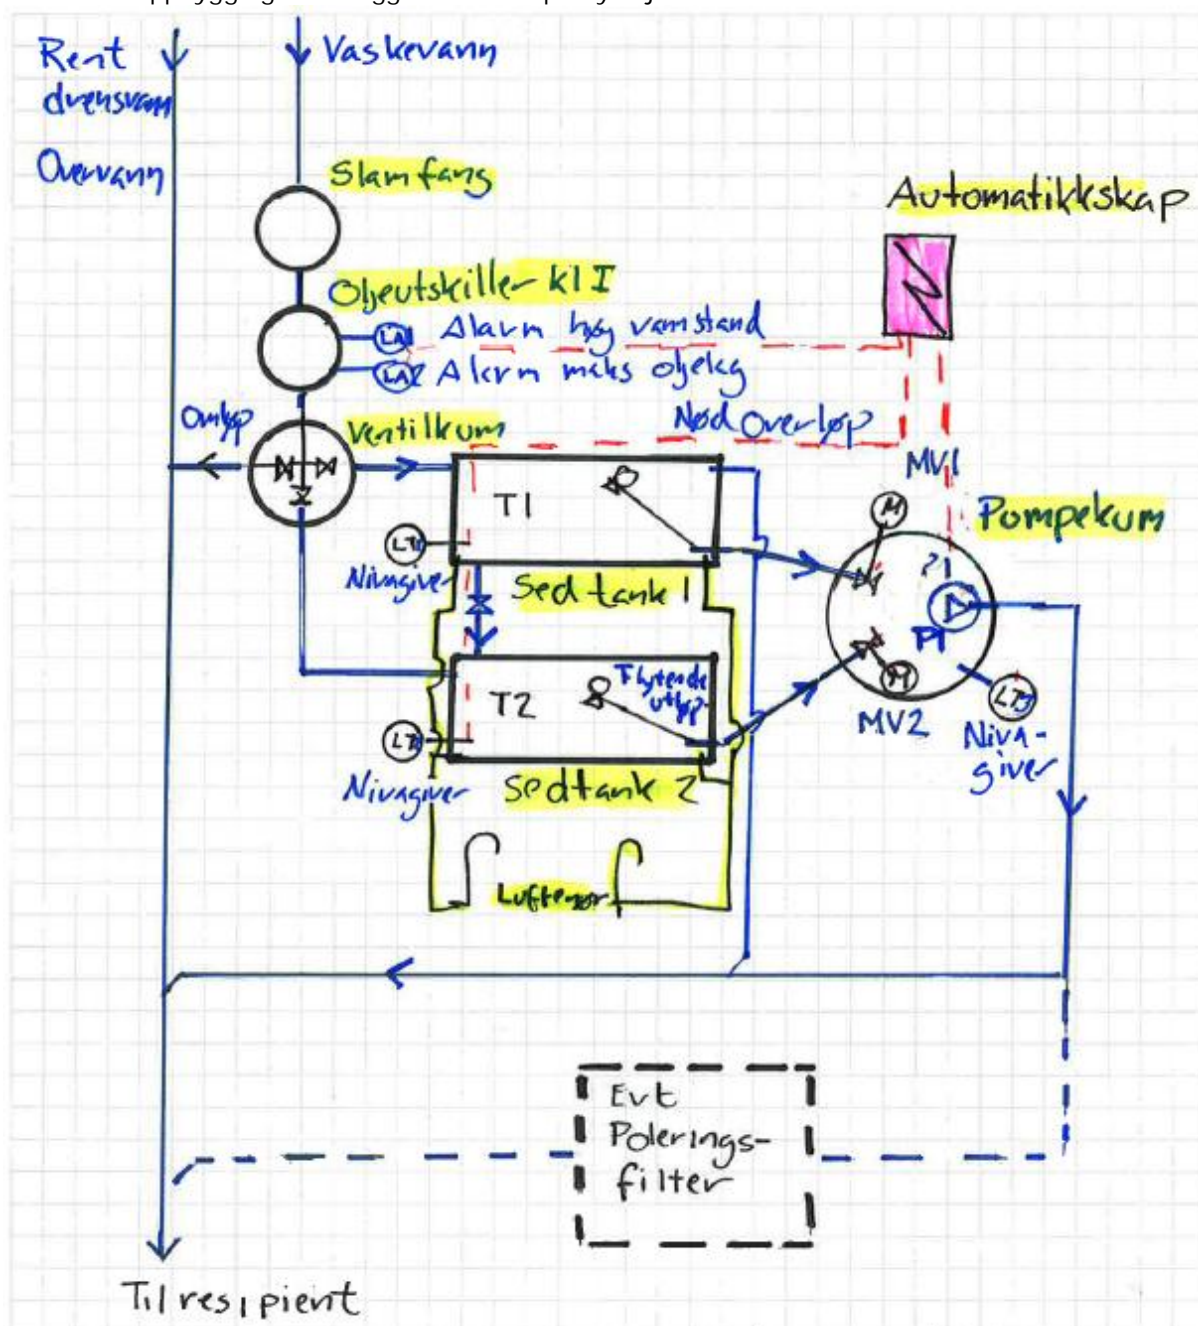 Rent
drensvann
Vaskevann
Overvann
Slamfang
Automatikkskap
Oljeutskiller kl I
LA1
Alarm høy vannstand
LA2
Alarm maks oljelag
Omløp
Ventilkum
Nød Overløp
MV1
T1
M
Pumpekum
LT
Nivågiver
Sed tank 1
P1
T2
Flytende
utløp
M
LT3
MV2
Nivå-
giver
LT
Nivågiver
Sedtank 2
Lufterør
Evt
Polerings-
filter
Til resipient